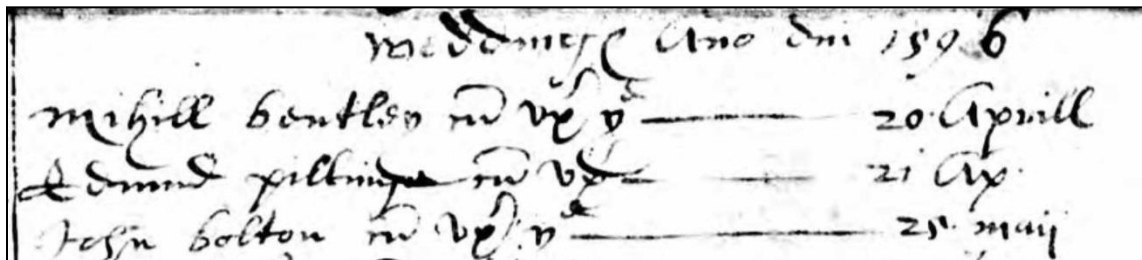 Weddinges Ano dni 1596
Mihill Bentley cu vx yᵉ 20 Aprill
Edmund pilling cu vx 21 Ap
John Bolton cu vx yᵉ 25 maij